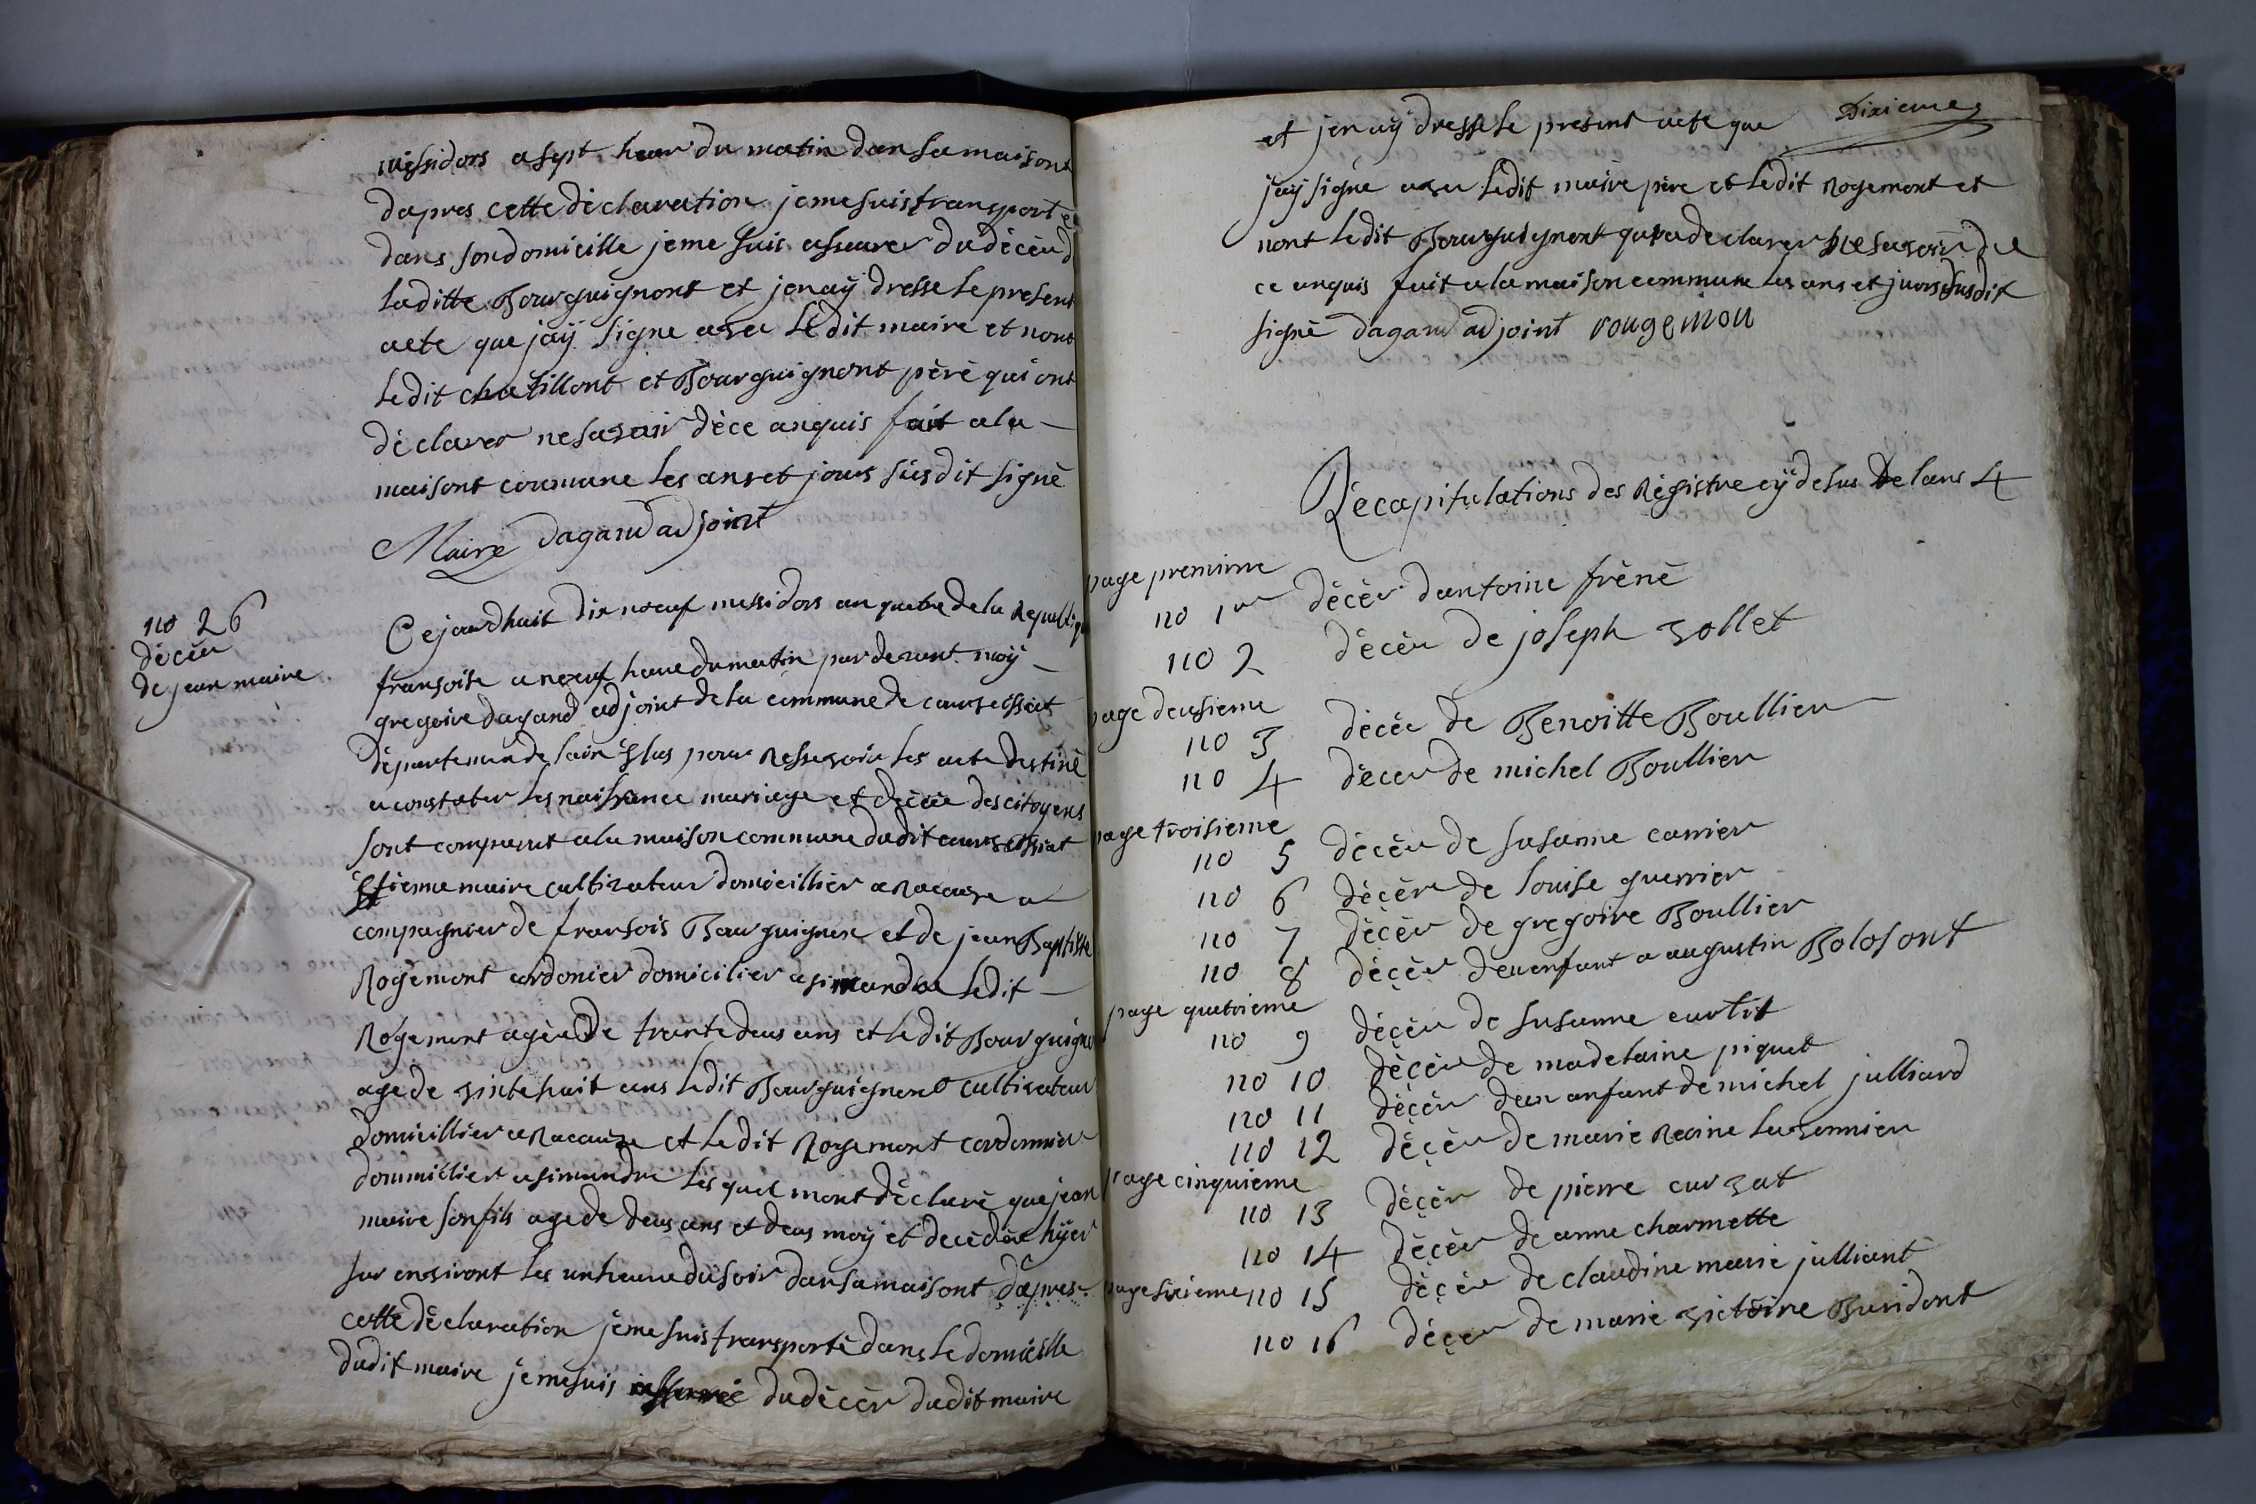 messidors a sept heur du matin dan sa maisont
dapres cette déclaration je me suis transporté
dans son domicille je me suis assurer du décèu d
laditte Bourguignont et jen aÿ dresse le present
acte que jaÿ signe aveu lèdit maire et nont
ledit chatillont et Bourguignont père qui ont
déclarer ne savoir dèce anquis fait a la
maisont coumune les ans et jours susdit signé
Maire dagand adjoint
no 26
décèu
de jean maire
Cejourdhuit dix nœuf messidors an quatre de la Republiqu
fransoise a nœuf heure du matin par devant moÿ
gregoire dagand adjoint de la commune de coursessiat
département de lain Élus pour ressevoir les acte destiné
a constater les naissance mariage et décèe des citoyens
sont comparut a la maison commune dudit courseissiat
Étienne maire cultivateur domicillier a Racouze a
compagnier de fransois Bourguignon et de jean Baptiste
Rogemont cordonier domicilier a simandre ledit
Rogemont agèe De trante deus ans et ledit Bourguigno
age de vintehuit ans ledit Bourguignont cultivateur
domicillier a Racouze et ledit Rogemont cordonnier
domicilier a simandre les quel mont dèclarè que jean
maire son fils age de deus ans et deus moÿ et decèdèe hÿer
sur environt les unheure du soir dan sa maisont dapres
cette dèclaration je me suis transportè dans le domicille
dudit maire je me suis assurée du dècèr dudit maire
Dixieme
et jen aÿ dresse le present acte que
jaÿ signe aveu lèdit maire père et lèdit Rogemont et
nont ledit Bourguignont qui a declarer ne savoir de
ce anquis fait a la maison commune les ans et juors susdit
signè dagand adjoint rougemon
Récapitulations des Régistre cÿ desus De lans 4
page premiere
no 1er décèr dantoine frènè
no 2 décèu de joseph vollet
page deusieme
no 3 décèe de Benoitte Boullier
no 4 décèr de michel Boullier
page troisieme
no 5 décèu de susanne carrier
no 6 décèr de louise guerrier
no 7 décèr de gregoire Boullier
no 8 décèr deu enfant a augustin Bolosont
page quatrieme
no 9 décèu de susanne curtit
no 10 décèr de madelaine piquet
no 11 décèr deun anfant de michel julliard
no 12 décèr de marie Reine lavonnier
page cinquieme
no 13 décèr de pierre curvat
no 14 décèr de anne charmette
page sixieme no 15 décèr de claudine marie julliant
no 16 décèr de marie victoire Buridont